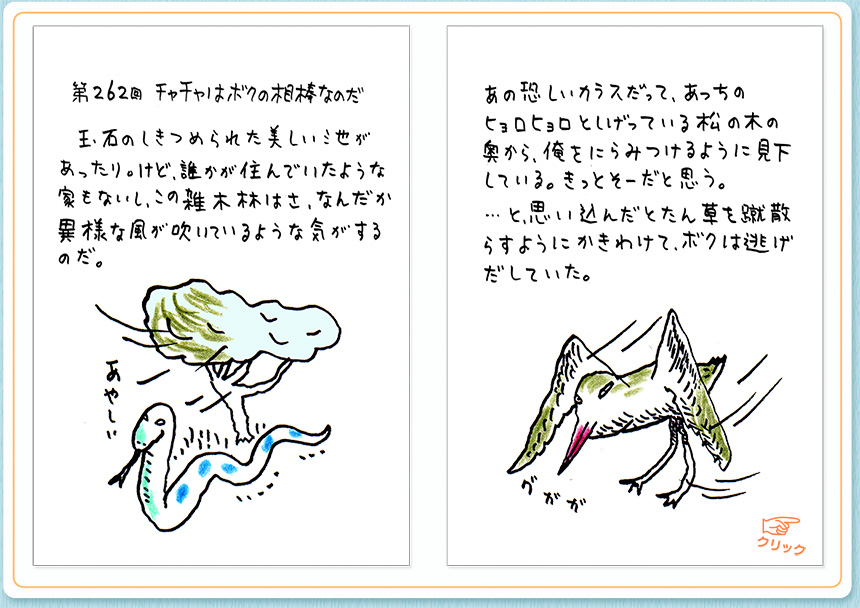 第262回 チャチャはボクの相棒なのだ
玉石のしきつめられた美しい池が
あったり。けど、誰かが住んでいたような
家もないし、この雑木林はさ、なんだか
異様な風が吹いているような気がする
のだ。
あやしい
あの恐しいカラスだって、あっちの
ヒョロヒョロとしげっている松の木の
奥から、俺をにらみつけるように見下
している。きっとそーだと思う。
…と、思い込んだとたん草を蹴散
らすようにかきわけて、ボクは逃げ
だしていた。
グガガ
クリック